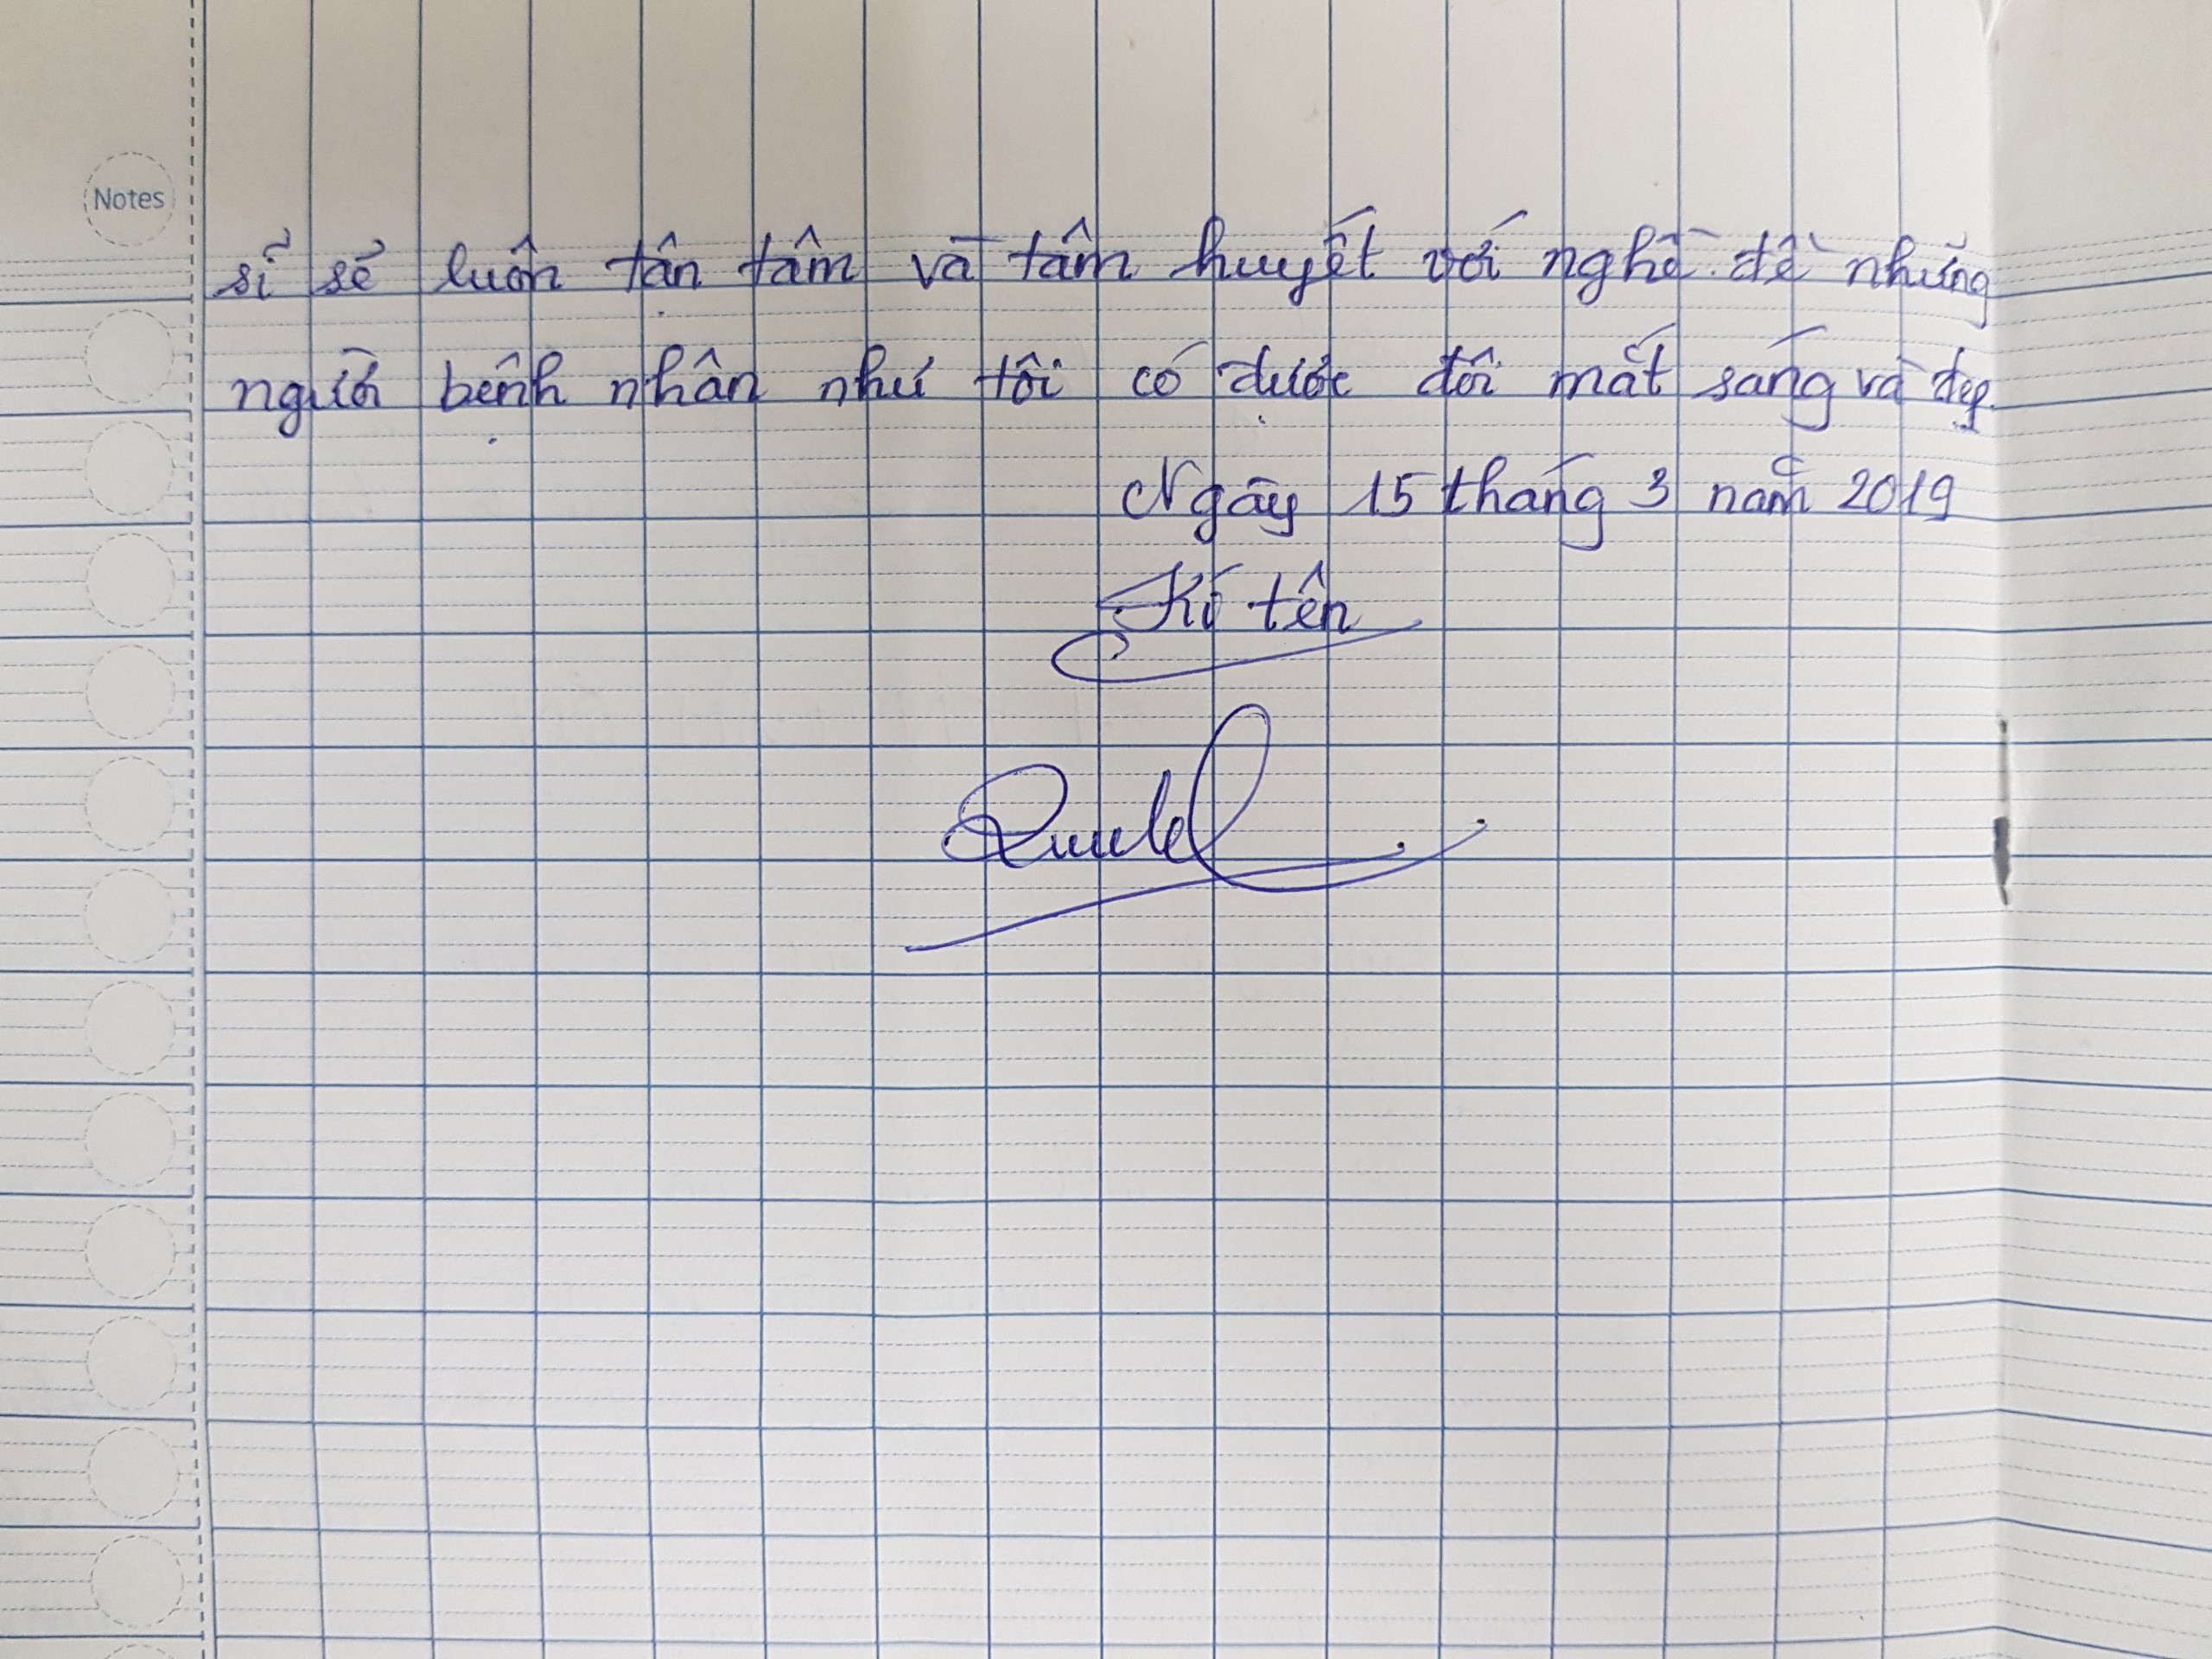 Notes
sĩ sẽ luôn tận tâm và tâm huyết với nghề để những
người bệnh nhân như tôi có được đôi mắt sáng và đẹp.
Ngày 15 tháng 3 năm 2019
Kí tên